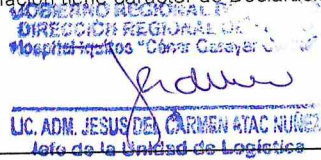 GOBIERNO REGIONAL D
DIRECCIÓN REGIONAL DE
Hospital Iquitos "César Garayar
LIC. ADM. JESUS DEL CARMEN ATAC NUÑEZ
Jefe de la Unidad de Logística